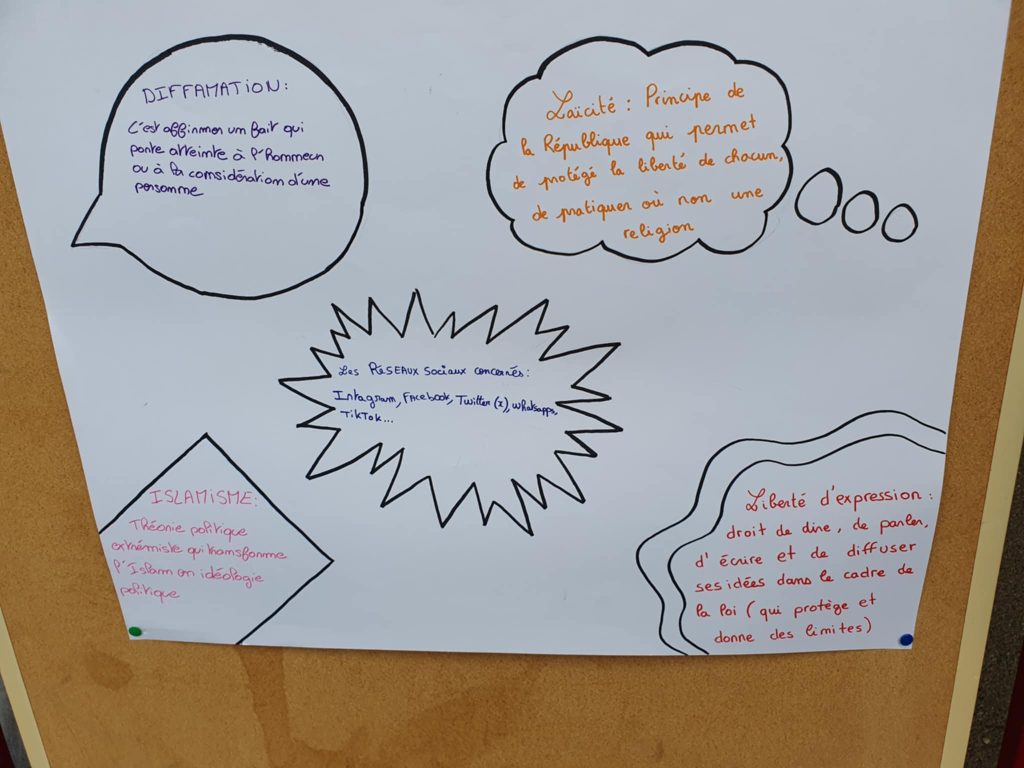 DIFFAMATION :
C'est affirmer un fait qui
porte atteinte à l'honneur
ou à la considération d'une
personne
Laïcité : Principe de
la République qui permet
de protégé la liberté de chacun,
de pratiquer où non une
religion
Les RÉSEAUX sociaux concernés :
Intagram, Facebook, Twitter (x), whatsapps,
TikTok...
ISLAMISME :
Théorie politique
extrémiste qui transforme
l'Islam en idéologie
politique
Liberté d'expression :
droit de dire, de parler,
d'écrire et de diffuser
ses idées dans le cadre de
la loi ( qui protège et
donne des limites )